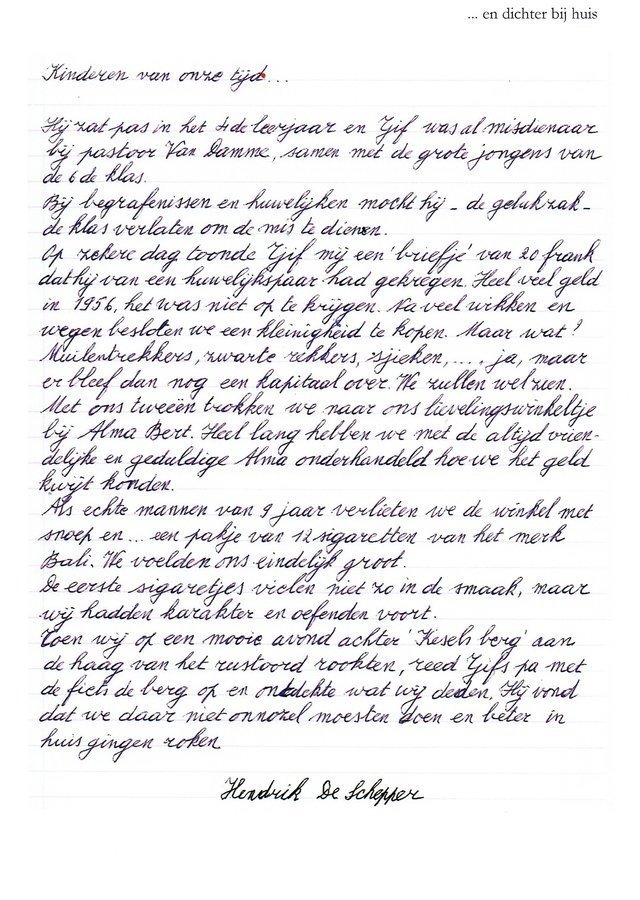 ... en dichter bij huis
Kinderen van onze tijd...
Hij zat pas in het 4de leerjaar en Gif was al misdienaar
bij pastoor Van Damme, samen met de grote jongens van
de 6de klas.
Bij begrafenissen en huwelijken mocht hij - de gelukzak -
de klas verlaten om de mis te dienen.
Op zekere dag toonde Gif mij een 'briefje' van 20 frank
dat hij van een huwelijkspaar had gekregen. Heel veel geld
in 1956, het was niet op te krijgen. Na veel wikken en
wegen besloten we een kleinigheid te kopen. Maar wat?
Muilentrekkers, zwarte rekkers, sjieken, .... ja, maar
er bleef dan nog een kapitaal over. We zullen wel zien.
Met ons tweeën trokken we naar ons lievelingswinkeltje
bij Alma Bert. Heel lang hebben we met de altijd vrien-
delijke en geduldige Alma onderhandeld hoe we het geld
kwijt konden.
Als echte mannen van 9 jaar verlieten we de winkel met
snoep en ... een pakje van 12 sigaretten van het merk
Bali. We voelden ons eindelijk groot.
De eerste sigaretjes vielen niet zo in de smaak, maar
wij hadden karakter en oefenden voort.
Toen wij op een mooie avond achter 'Kesels berg' aan
de haag van het rustoord rookten, reed Gifs pa met
de fiets de berg op en ontdekte wat wij deden. Hij vond
dat we daar niet onnozel moesten doen en beter in
huis gingen roken
Hendrik De Schepper